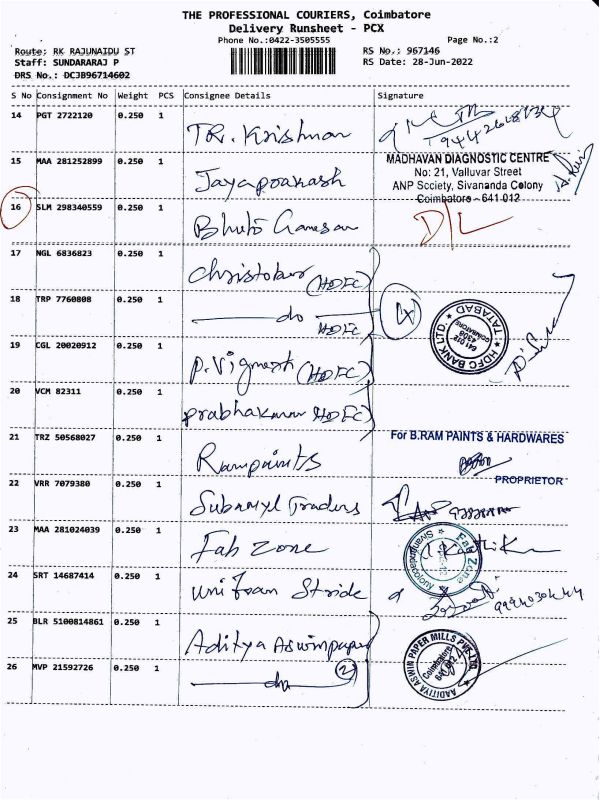 THE PROFESSIONAL COURIERS, Coimbatore
Delivery Runsheet - PCX
Phone No.:0422-3505555
Page No.:2
Route: RK RAJUNAIDU ST
RS No.: 967146
Staff: SUNDARARAJ P
RS Date: 28-Jun-2022
DRS No.: DCJB96714602
S No Consignment No Weight PCS Consignee Details Signature
14 PGT 2722120 0.250 1 TR. Krishnan
15 MAA 281252899 0.250 1 Jayaprakash
MADHAVAN DIAGNOSTIC CENTRE
No: 21, Valluvar Street
ANP Society, Sivananda Colony
Coimbatore - 641 012
16 SLM 298340559 0.250 1 D/L
17 NGL 6836823 0.250 1 Christober (HDFC)
18 TRP 7760808 0.250 1 do HDFC (4)
HDFC BANK LTD. TATABAD
COIMBATORE
641 012
19 CGL 20020912 0.250 1 P. Vignesh (HDFC)
20 VCM 82311 0.250 1 prabhakaran (HDFC)
21 TRZ 50568027 0.250 1 Rampaints
For B.RAM PAINTS & HARDWARES
PROPRIETOR
22 VRR 7079380 0.250 1 Traders
23 MAA 281024039 0.250 1 Fab Zone
Fab Zone
24 SRT 14687414 0.250 1 Stride
25 BLR 5100814861 0.250 1 Aditya Aswinpaper
AADITIYA ASWIN PAPER MILLS PVT LTD
Coimbatore
641 012
26 MVP 21592726 0.250 1 do (2)